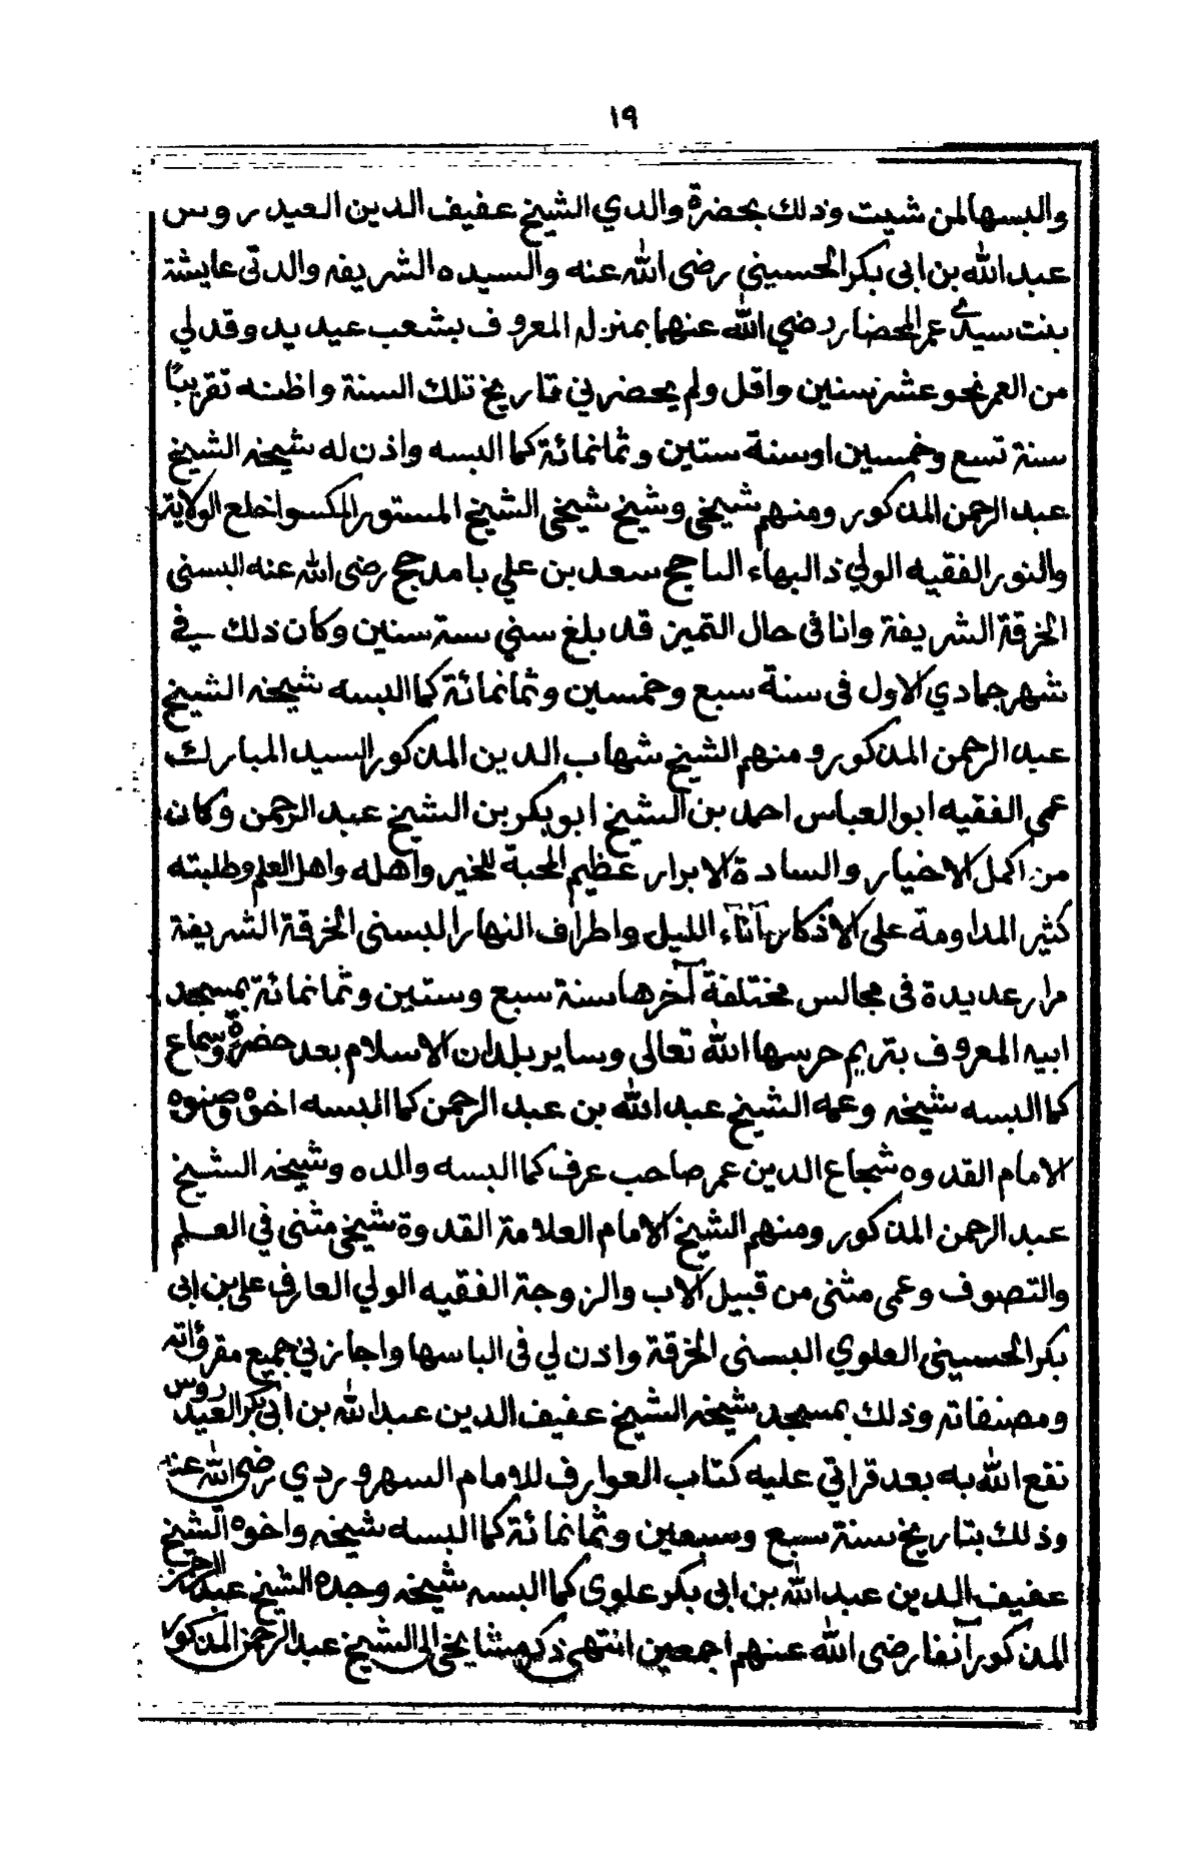 ١٩
والبسها لمن شيت وذلك بحضرة والدي الشيخ عفيف الدين العيدروس
عبد الله بن ابى بكر الحسيني رضى الله عنه والسيده الشريفه والدتى عايشة
بنت سيدي عمر المحضار رضي الله عنهما بمنزله المعروف بشعب عيديد وقد لي
من العمر نحو عشر سنين واقل ولم يحضرني تاريخ تلك السنة واظنه تقريبًا
سنة تسع وخمسين او سنة ستين وثمانمائة كما البسه واذن له شيخه الشيخ
عبد الرحمن المذكور ومنهم شيخي وشيخ شيخى الشيخ المستور المكسوا خلع الولاية
والنور الفقيه الولي ذا البهاء الناجح سعد بن علي با مدحج رضى الله عنه البسني
الخرقة الشريفة وانا فى حال التميز قد بلغ سني ستة سنين وكان ذلك في
شهر جمادي الاول فى سنة سبع وخمسين وثمانمائة كما البسه شيخه الشيخ
عبد الرحمن المذكور ومنهم الشيخ شهاب الدين المذكور السيد المبارك
عمى الفقيه ابو العباس احمد بن الشيخ ابو بكر بن الشيخ عبد الرحمن وكان
من اكمل الاخيار والسادة الابرار عظيم المحبة للخير واهله واهل العلم وطلبته
كثير المداومة على الاذكار آناء الليل واطراف النهار البسنى الخرقة الشريفة
مرار عديدة فى مجالس مختلفة آخرها سنة سبع وستين وثمانمائة بمسجد
ابيه المعروف بتريم حرسها الله تعالى وساير بلدان الاسلام بعد حضرة وسماع
كما البسه شيخه وعمه الشيخ عبد الله بن عبد الرحمن كما البسه اخوه وصنوه
الامام القدوه شجاع الدين عمر صاحب عرف كما البسه والده وشيخه الشيخ
عبد الرحمن المذكور ومنهم الشيخ الامام العلامة القدوة شيخي مثنى في العلم
والتصوف وعمى مثنى من قبيل الاب والزوجة الفقيه الولي العارف على بن ابى
بكر الحسينى العلوي البسنى الخرقة واذن لي فى الباسها واجازني جميع مقرؤاته
ومصنفاته وذلك بمسجد شيخه الشيخ عفيف الدين عبد الله بن ابى بكر العيدروس
نفع الله به بعد قراتي عليه كتاب العوارف للامام السهروردي رضى الله عنه
وذلك بتاريخ سنة سبع وسبعين وثمانمائة كما البسه شيخه واخوه الشيخ
عفيف الدين عبد الله بن ابى بكر علوى كما البسه شيخه وجده الشيخ عبد الرحمن
المذكور آنفا رضى الله عنهم اجمعين انتهى ذكر مشايخى الى الشيخ عبد الرحمن المذكور